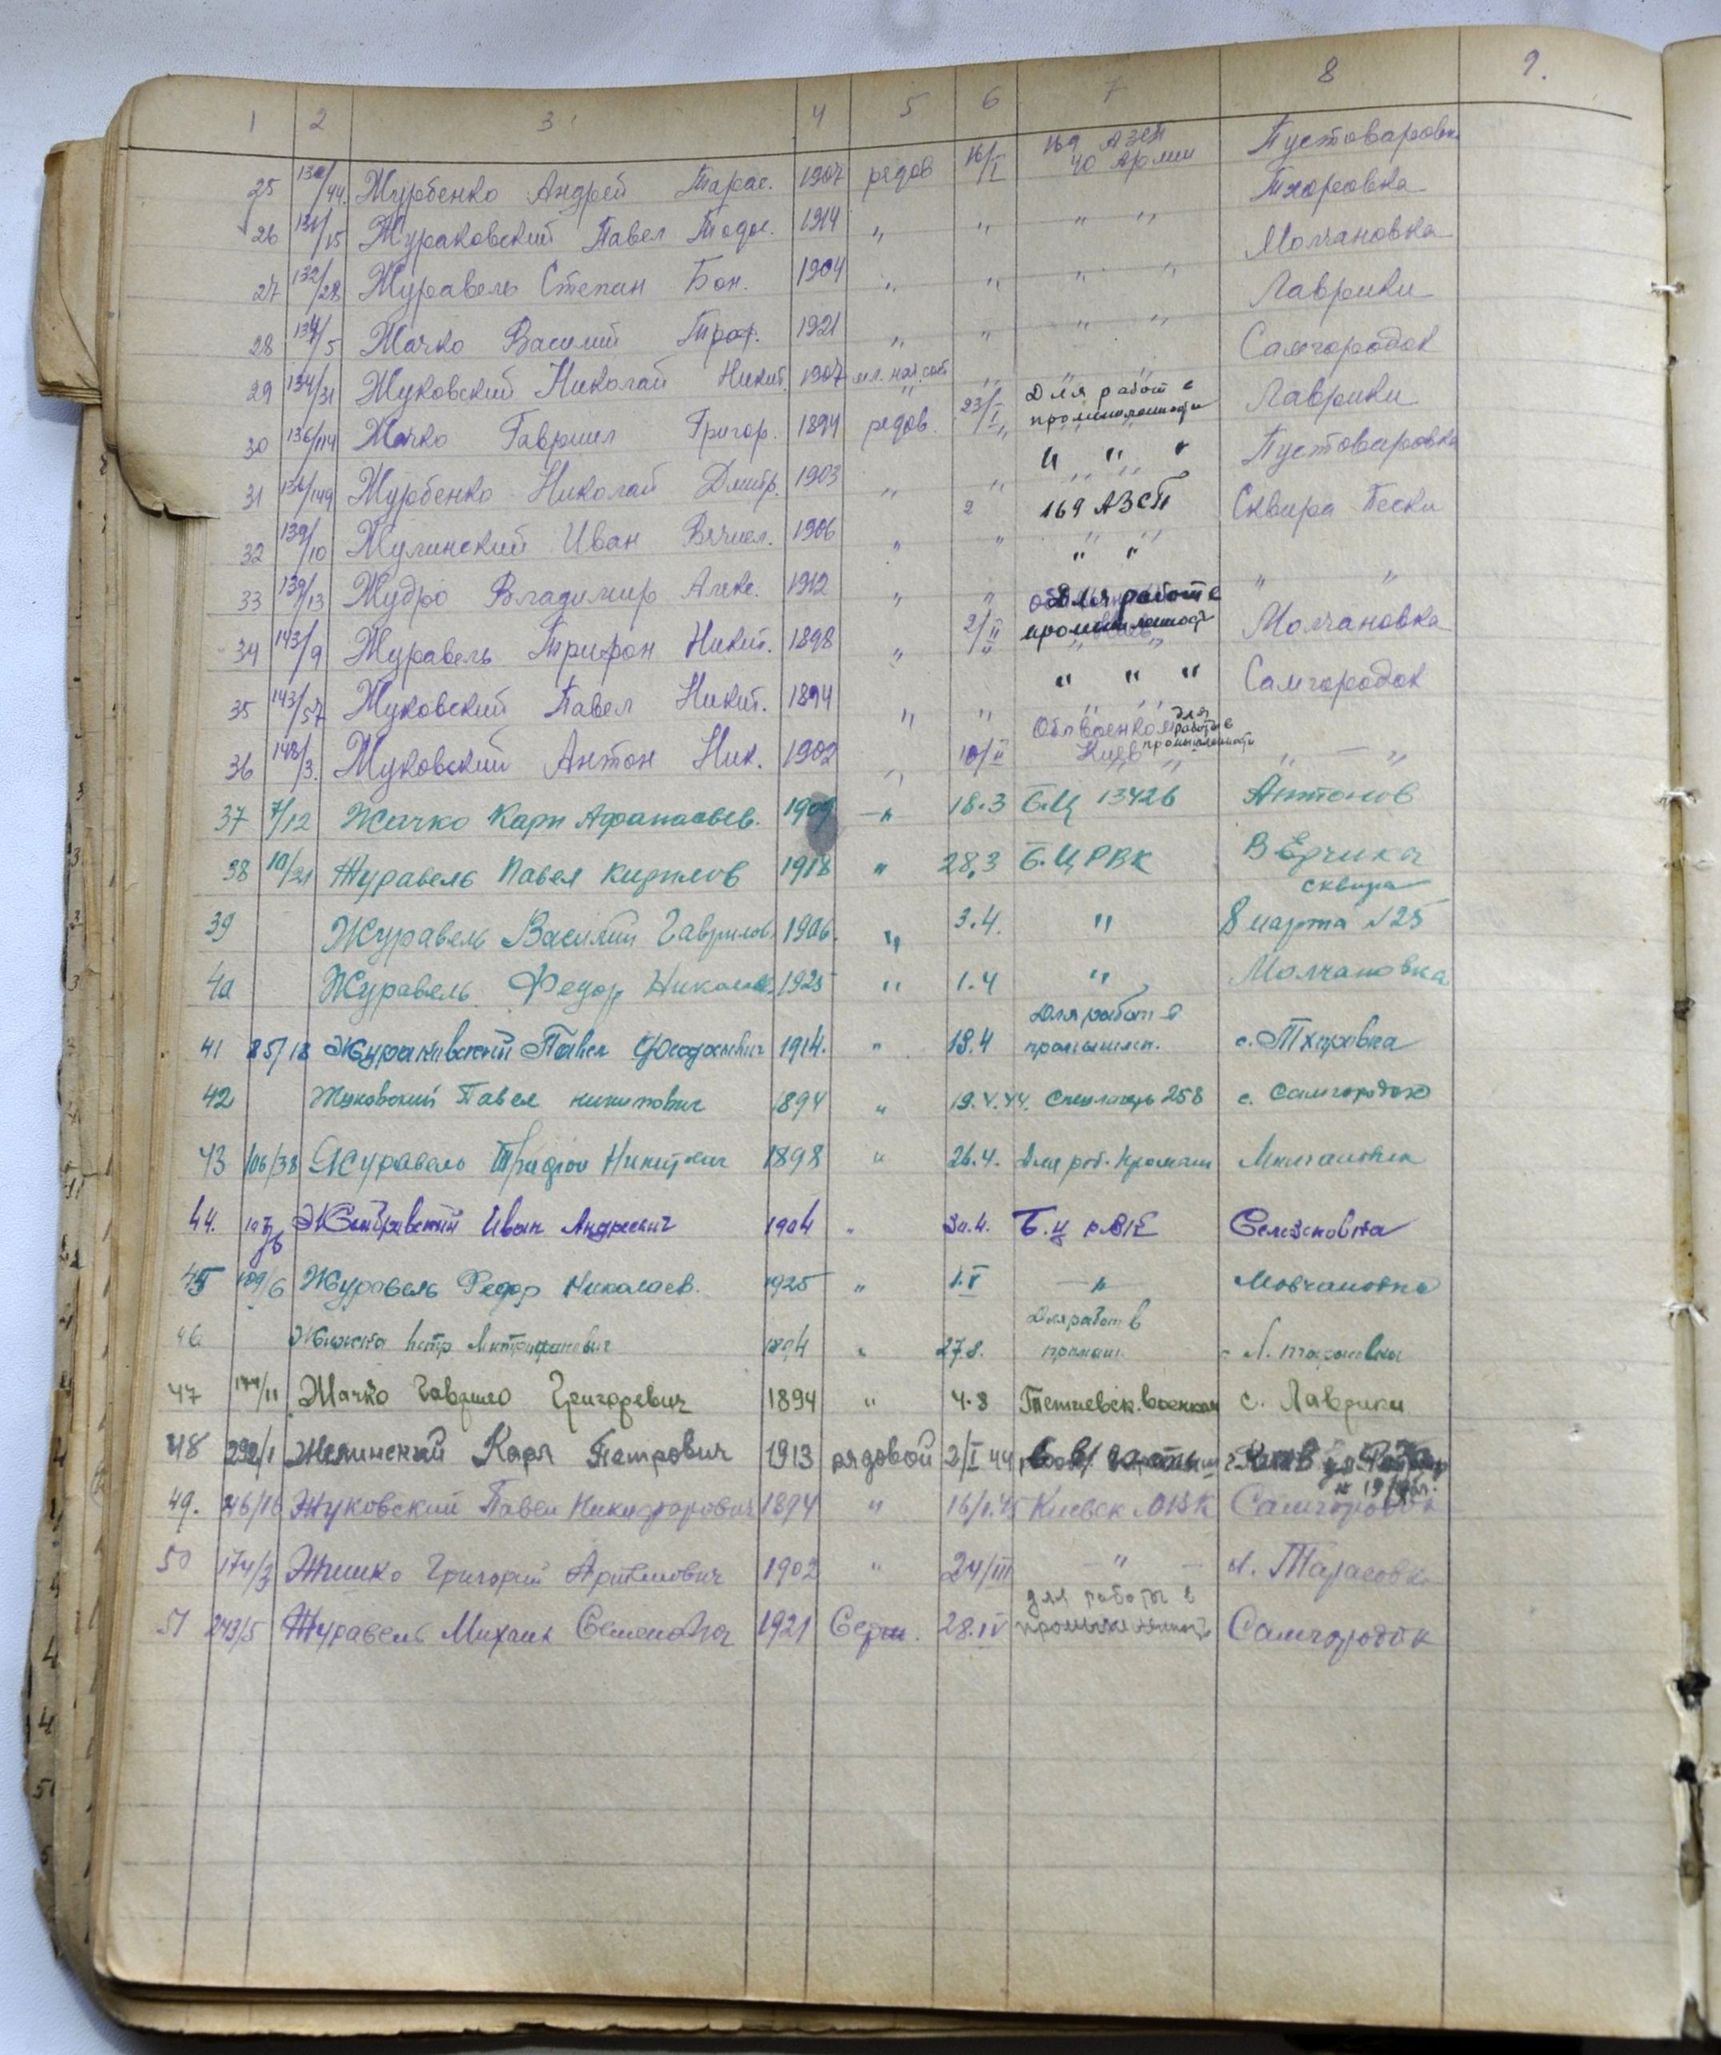 1 2 3 4 5 6 7 8 9.
25 130/44. Журбенко Андрей Тарас. 1907 рядов 16/I 169 АЗСП 40 Армии Пустоваровка
26 131/15 Жураковский Павел Тодос. 1914 " " " " Тхоровка
27 132/28 Журавель Степан Бон. 1904 " " " " Молчановка
28 134/5 Жачко Василий Троф. 1921 " " " " Лаврики
29 134/31 Жуковский Николай Никит. 1907 мл. нач. сост " " " Самгородок
30 136/114 Жачко Гавриил Григор. 1894 рядов. 23/I Для работ в промышленности Лаврики
31 136/149 Журбенко Николай Дмитр. 1903 " " " " " Пустоваровка
32 139/10 Жулинский Иван 1906 " " 169 АЗСП Сквира Пески
33 139/13 Жудро Владимир Алекс. 1912 " " " " " "
34 143/9 Журавель Трифон Никит. 1898 " 2/II Для работ в промышленност Молчановка
35 143/57 Жуковский Павел Никит. 1894 " " " " " Самгородок
36 148/3. Жуковский Антон Ник. 1902 " 10/II Облвоенком Киев для работы в промышленности " — "
37 7/12 Жачко Карп Афанасьев. 1909 —" 18.3 Б.Ц 13426 Антонов
38 10/21 Журавель Павел Кирилов 1918 " 28.3 Б.Ц РВК В Ерчики
39 Журавель Василий Гаврилов. 1906. " 3.4. " Сквира 8 марта №25
40 Журавель Федор Николаев. 1925 " 1.4 " Молчановка
41 85/18 Жураковский Павел Феодосиевич 1914. " 18.4 Для работ в промышлен. с. Тхоровка
42 Жуковский Павел Никитович 1894 " 19.4.44. Спецлагерь 258 с. Самгородок
43 106/38 Журавель Трифон Никитович 1898 " 26.4. Для раб. Промыш Молчановка
44. Иван Андреевич 1904 " 30.4. Б.Ц РВК Селезеновка
45 109/6 Журавель Федор Николаев. 1925 " 1.V —"— Мовчановка
46 Петр Митрофанович 1894 " 27.8. Для работ в промыш.
47 177/11 Жачко Гаврило Григоревич 1894 " 4.8 Тетиевск. военком с. Лаврики
48 292/1 Карл Петрович 1913 рядовой 2/I 44
49. 246/16 Жуковский Павел Никифорович 1894 " 16/I.45 Киевск. ОВК Самгородок
50 174/3 Григорий Артемович 1902 " 24/III —"— Тарасовка
51 243/5 Журавель Михаил Семенович 1921 Серж. 28.IV для работы в промышленност Самгородок